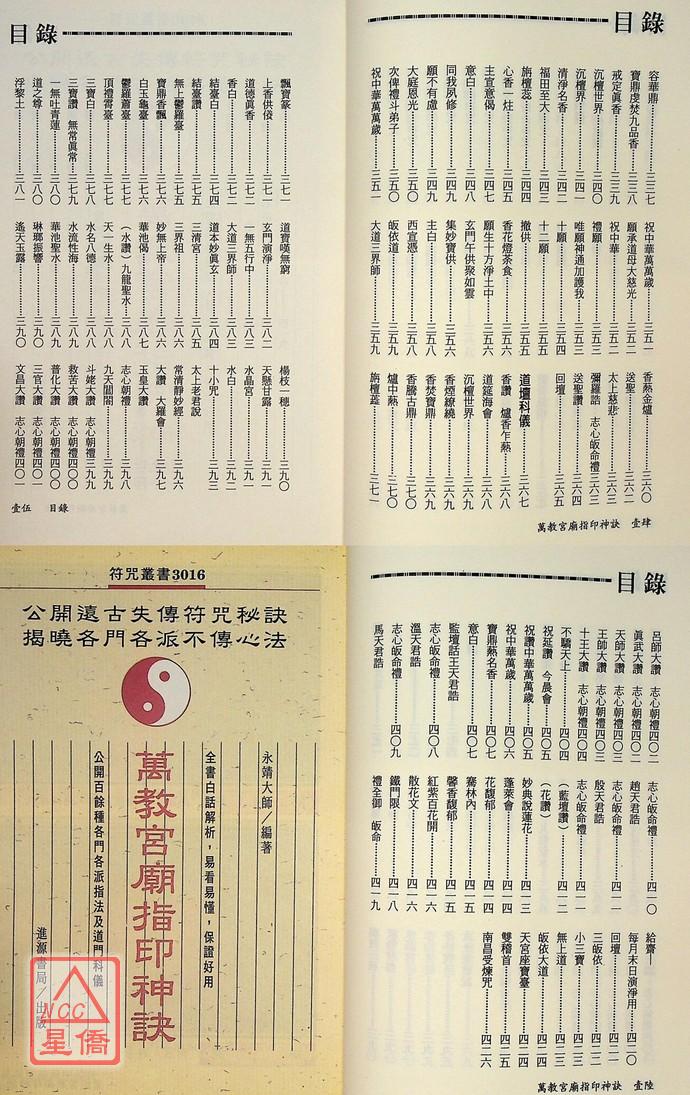 目錄
容華鼎……三三七
寶鼎虔焚九品香……三三八
戒定眞香……三三九
沉檀世界……三四〇
沉檀界……三四一
清淨名香……三四二
福田至大……三四三
旃檀蕊……三四四
心香一炷……三四五
主宣意偈……三四六
意白……三四八
同我夙修……三四九
願不有慮……三四九
大庭恩光……三五〇
次俾禮斗弟子……三五〇
祝中華萬萬歲……三五一
祝中華萬萬歲……三五一
願承道母大慈光……三五二
祝中華……三五二
禮願……三五三
唯願神通加護我……三五三
十願……三五四
十二願……三五四
撤供……三五五
香花燈茶食……三五五
願生十方淨土中……三五六
玄門午供聚如雲……三五六
集妙寶供……三五六
主白……三五八
西宣憑……三五八
皈依道……三五九
大道三界師……三五九
香熱金爐……三六〇
送聖……三六一
太上慈悲……三六二
彌羅誥 志心皈命禮三六三
送聖讚……三六四
回壇……三六五
道壇科儀
香讚 爐香乍爇……三六七
道筵海會……三六八
沉檀世界……三六八
香煙繚繞……三六九
香焚寶鼎……三六九
香騰古鼎……三七〇
爐中爇……三七〇
旃檀蕋……三七一
萬教宮廟指印神訣 壹肆
目錄
飄寶篆……三七一
上香供伩……三七一
道德眞香……三七二
香白……三七二
結臺白……三七四
結臺讚……三七五
無上鬱羅臺……三七五
寶鼎香飄……三七六
白玉龜臺……三七六
鬱羅蕭臺……三七七
頂禮雲臺……三七七
三寶白……三七八
三寶讚 無常眞常……三七九
一無吐青蓮……三七九
道之尊……三八〇
浮黎土……三八一
道寶嘆無窮
玄門演淨……三八二
一無五行中……三八三
大道三界師……三八三
道本妙眞玄……三八四
三清宮……三八五
三界祖……三八五
妙無上帝……三八六
華池偈……三八七
（水讚）九龍聖水……三八八
天一生水……三八八
水名八德……三八八
水流性海……三八九
華池聖水……三八九
琳瑯振響……三九〇
遙天玉露……三九〇
楊枝一穗……三九〇
天懸甘露……三九一
水晶宮……三九一
水白……三九二
十小咒……三九三
太上老君說
常清靜妙經……三九六
大讚 大羅會……三九七
玉皇大讚
志心朝禮……三九八
九天閶闔……三九九
斗姥大讚 志心朝禮三九九
救苦大讚 志心朝禮四〇〇
普化大讚 志心朝禮四〇〇
三官大讚 志心朝禮四〇一
文昌大讚 志心朝禮四〇一
壹伍 目錄
符咒叢書3016
公開遠古失傳符咒秘訣
揭曉各門各派不傳心法
永靖大師／編著
全書白話解析，易看易懂，保證好用
萬教宮廟指印神訣
公開百餘種各門各派指法及道門科儀
進源書局／出版
NCC
星僑
目錄
呂師大讚 志心朝禮四〇二
眞武大讚 志心朝禮四〇二
天師大讚 志心朝禮四〇三
王師大讚 志心朝禮四〇三
十王大讚 志心朝禮四〇四
不驕天上……四〇四
祝延讚 今晨會……四〇五
祝讚中華萬萬歲……四〇五
祝中華萬萬歲……四〇六
寶鼎爇名香……四〇七
意白……四〇七
監壇話王天君誥
志心皈命禮……四〇八
溫天君誥
志心皈命禮……四〇九
馬天君誥
志心皈命禮……四一〇
趙天君誥
志心皈命禮……四一一
殷天君誥
志心皈命禮……四一一
（藍壇讚）……四一二
（花讚）
妙典說蓮花……四一三
蓬萊會……四一四
花馥郁……四一四
騫林內……四一五
馨香馥郁……四一五
紅紫百花開……四一六
散花文……四一六
鐵門限……四一八
禮全御 皈命……四一九
給齋—
每月末日演淨用……四二〇
回壇……四二一
三皈依……四二一
小三寶……四二二
無上道……四二三
皈依大道……四二四
天宮座寶臺……四二四
雙稽首……四二五
南昌受煉咒……四二六
萬教宮廟指印神訣 壹陸